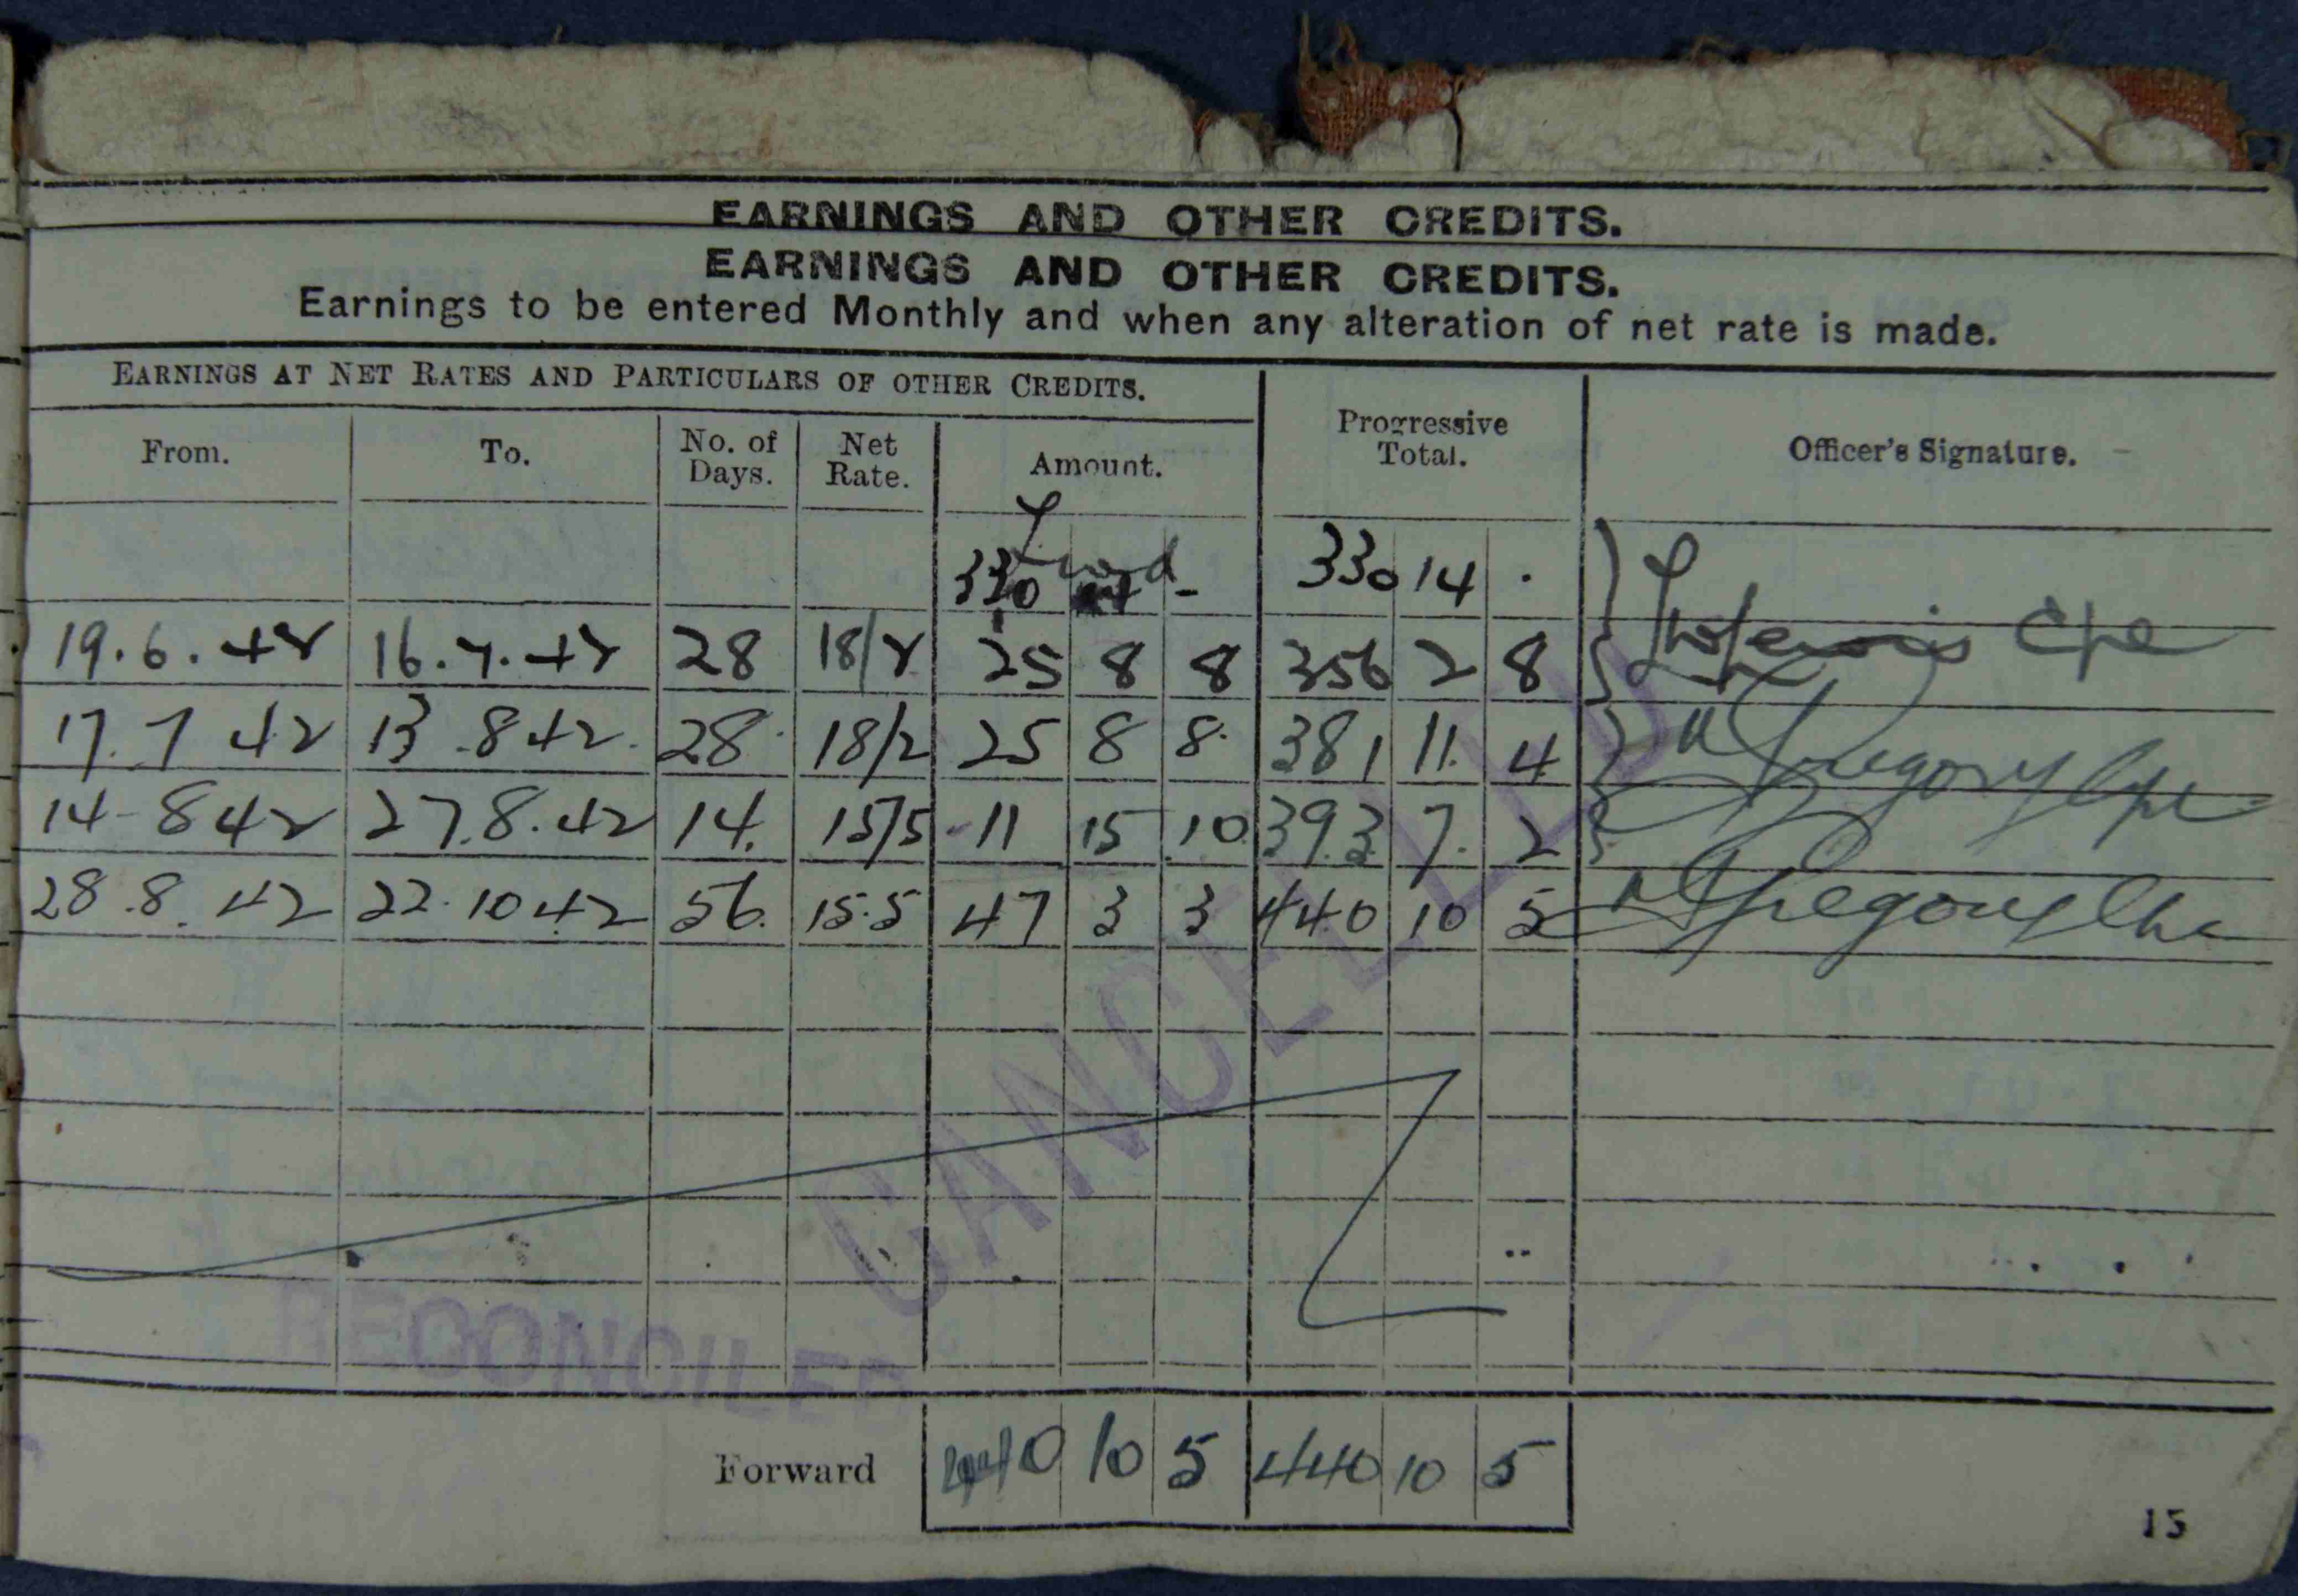 EARNINGS AND OTHER CREDITS.
EARNINGS AND OTHER CREDITS.
Earnings to be entered Monthly and when any alteration of net rate is made.
EARNINGS AT NET RATES AND PARTICULARS OF OTHER CREDITS.
From. To. No. of Days. Net Rate. Amount. Progressive Total. Officer's Signature.
330 - 330 14 .
19.6.42 16.7.42 28 18/2 25 8 8 356 2 8
17.7 42 13.8 42. 28 18/2 25 8 8. 381 11. 4 Gregory
14-8 42 27.8.42 14. 15/5 11 15 10 393 7. 2
28.8.42 22.10 42 56. 15.5 47 3 3 440 10 5 Gregory
CANCELLED
RECONCILED
Forward 10 5 440 10 5
15